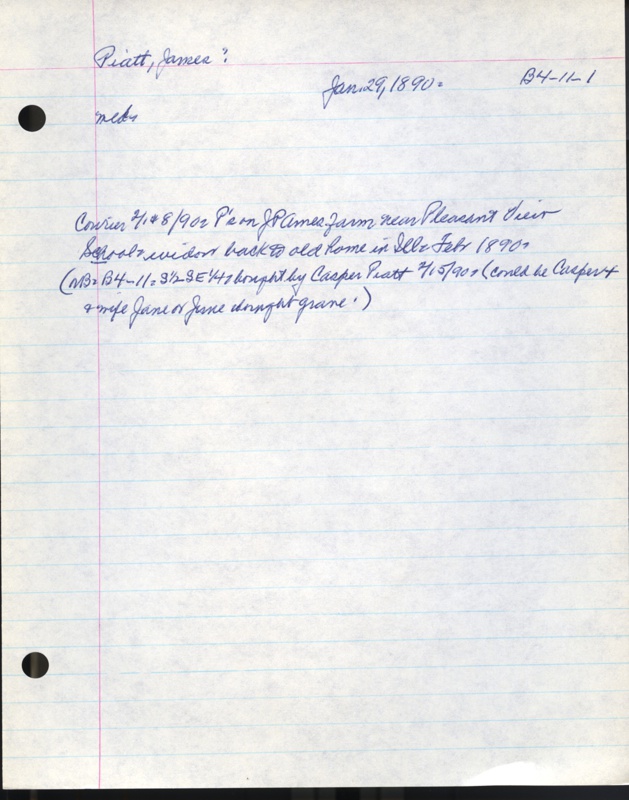 Piatt, James?
Jan. 29, 1890. B4-11-1
Courier 2/1 & 8/90. P's on J P Ames farm near Pleasant View
School. widow back to old home in Ill. Feb. 1890.
(NB. B4-11. S½ SE¼ bought by Casper Piatt 2/15/90. (could be Casper &
& wife Jane or June bought grave.)